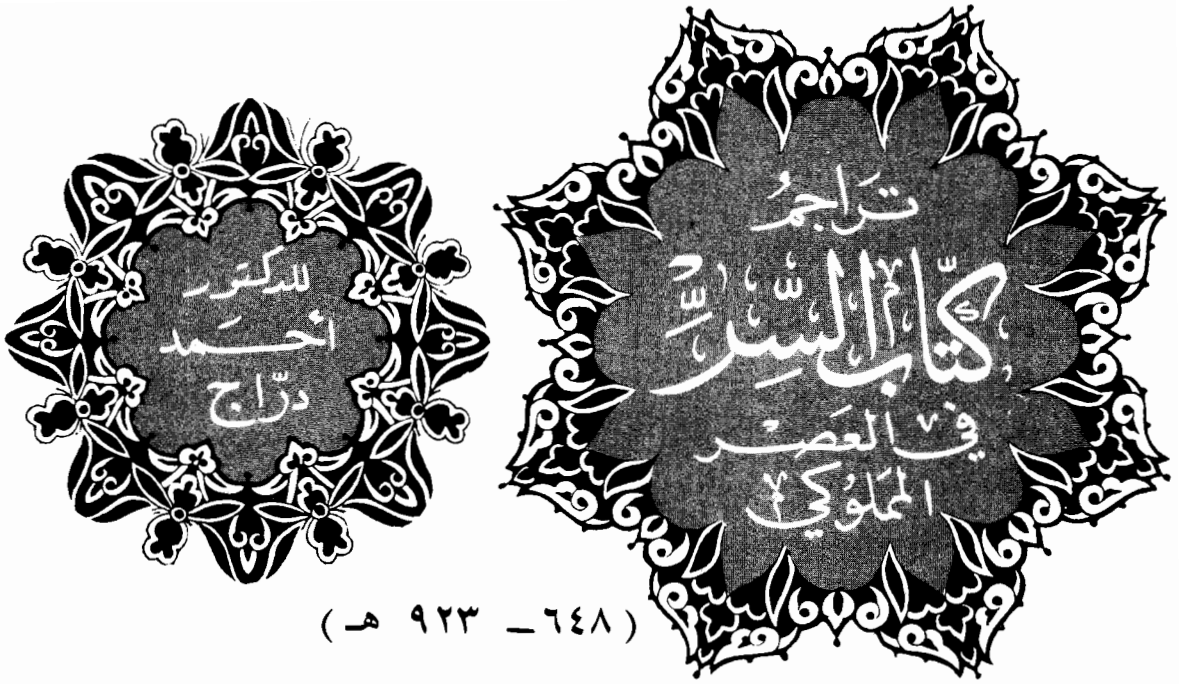 تَرَاجِمُ
كُتَّابُ السِّرِّ
في العَصْر
المَملُوكي
للدكتور
أحْمَد
درّاج
(٦٤٨ ــ ٩٢٣ هـ)